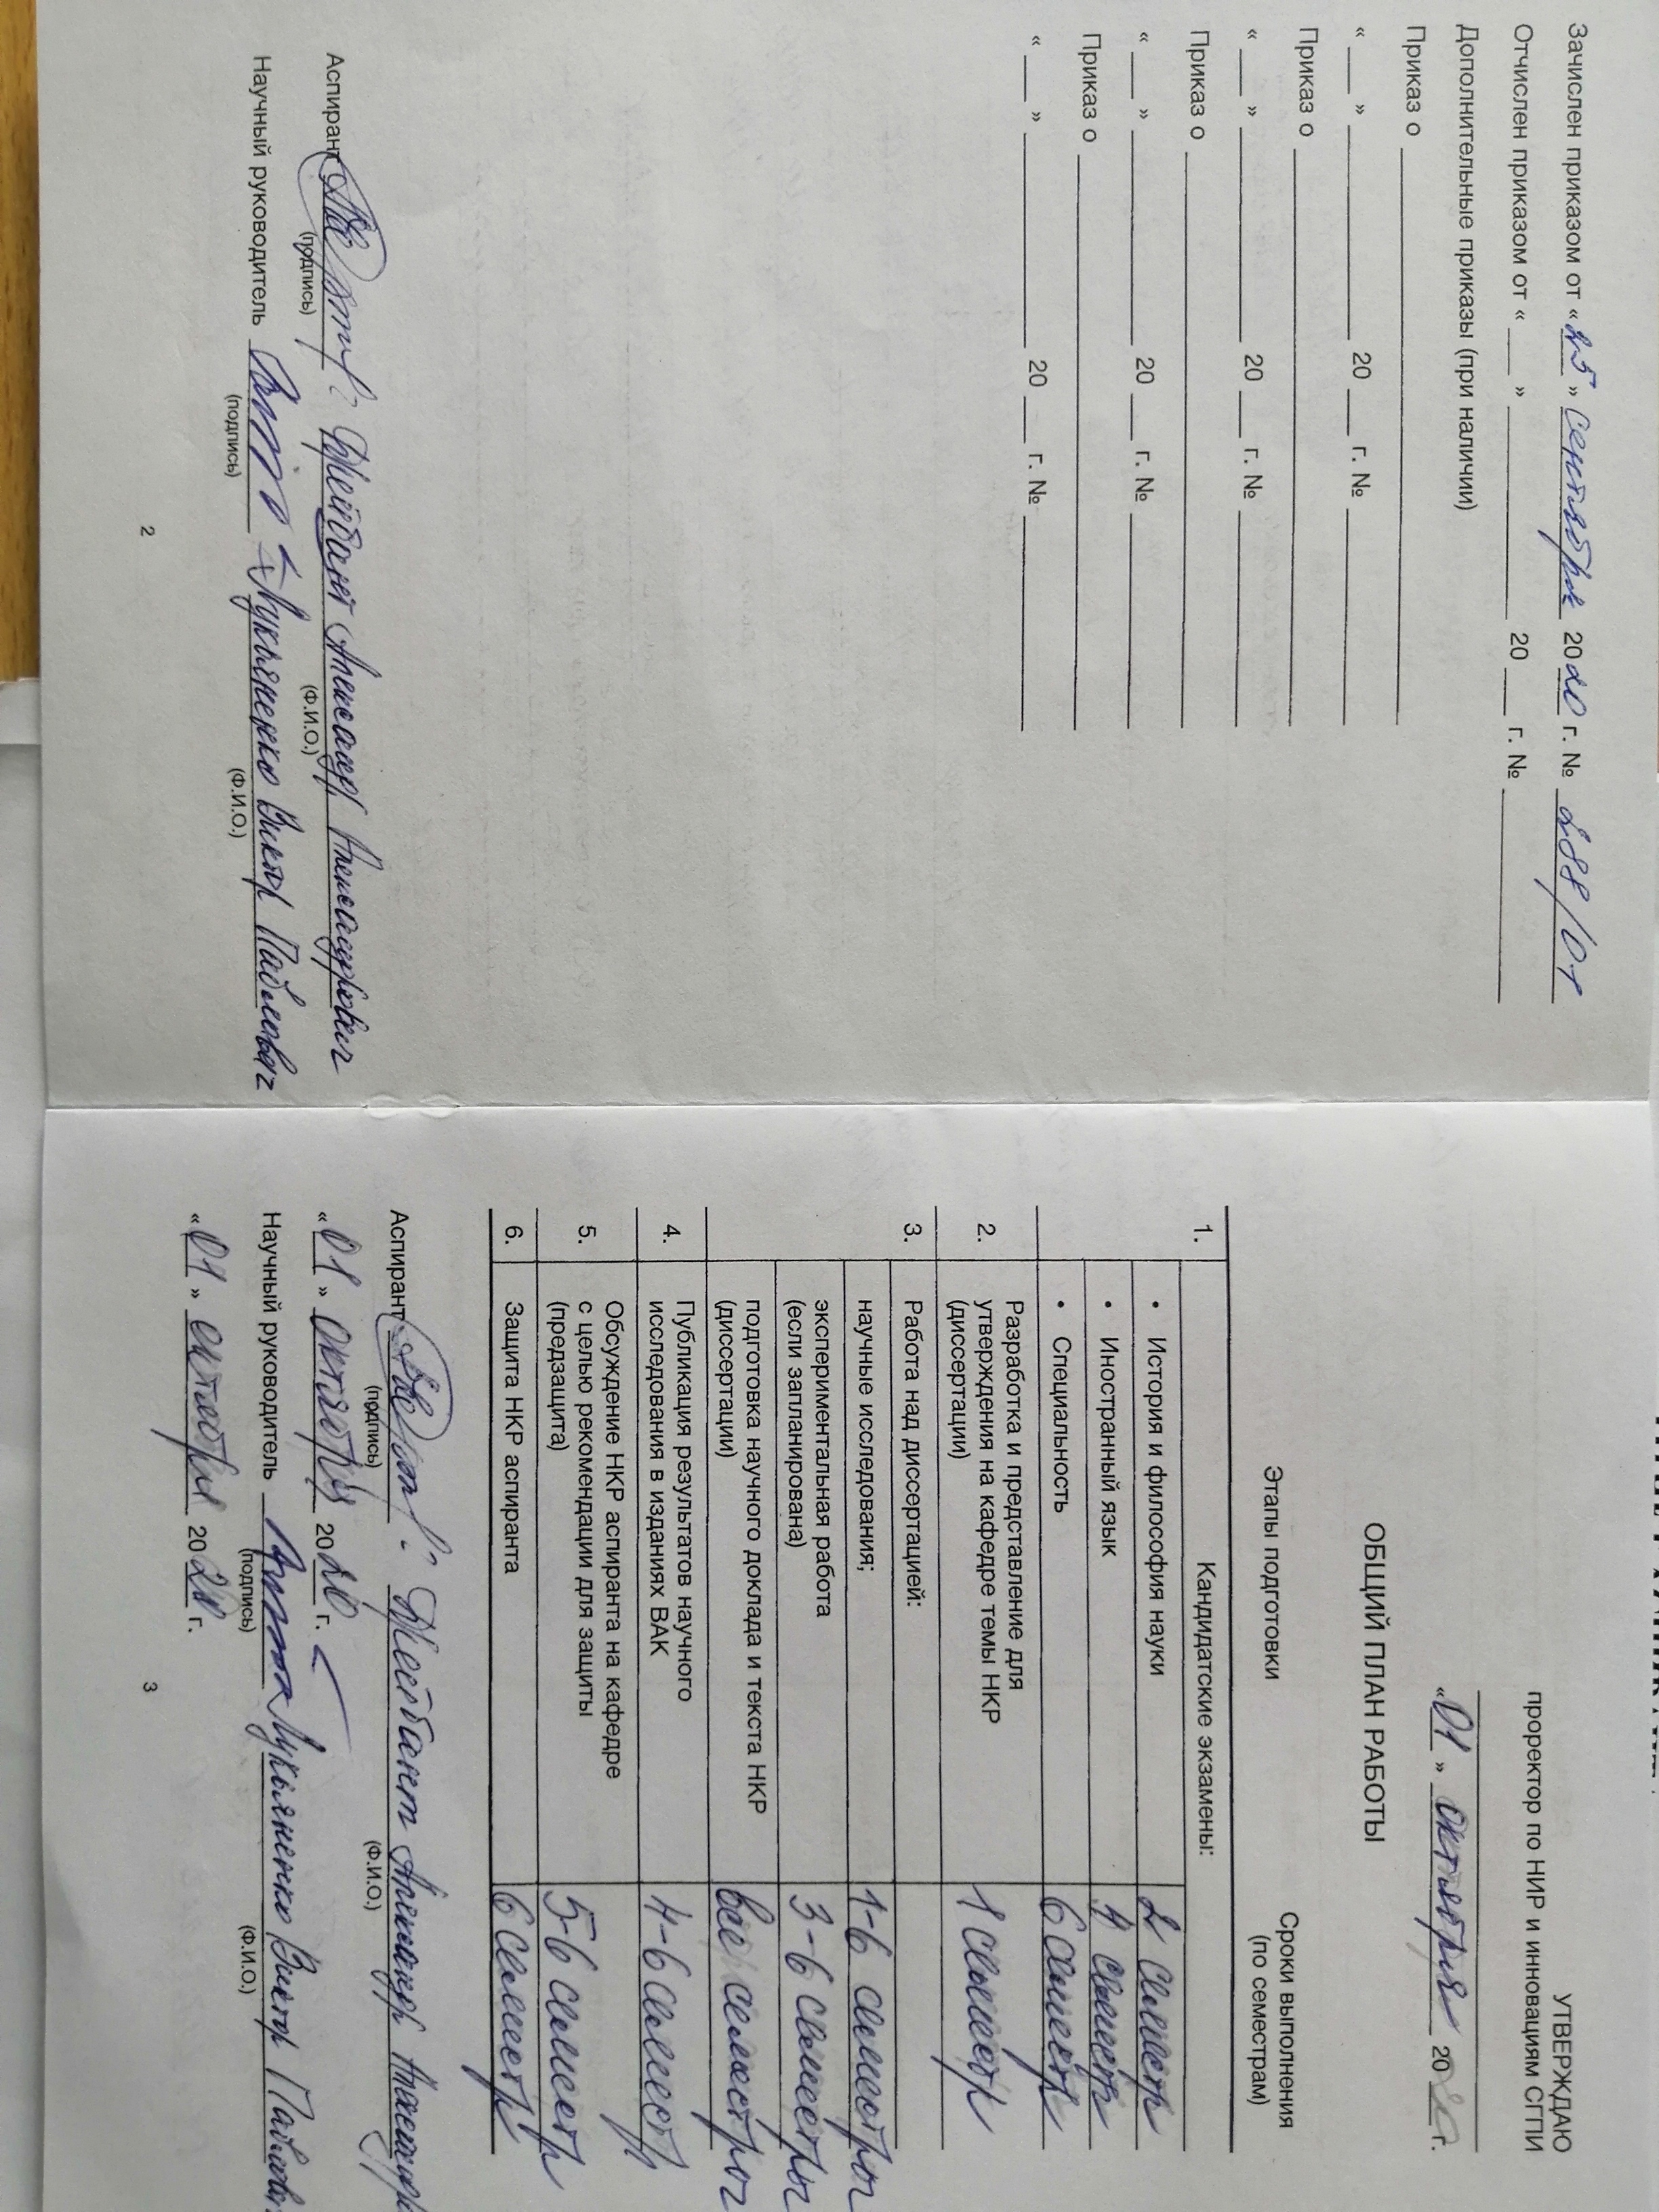 Зачислен приказом от «25» сентября 2020 г. № 288/01
Отчислен приказом от «___» ____________ 20 ___ г. № ____________
Дополнительные приказы (при наличии)
Приказ о ____________
«___» ____________ 20 ___ г. № ____________
Приказ о ____________
«___» ____________ 20 ___ г. № ____________
Приказ о ____________
«___» ____________ 20 ___ г. № ____________
Приказ о ____________
«___» ____________ 20 ___ г. № ____________
Аспирант Александр Александрович
(подпись) (Ф.И.О.)
Научный руководитель Лукьяненко Виктор Павлович
(подпись) (Ф.И.О.)
2
УТВЕРЖДАЮ
проректор по НИР и инновациям СГПИ
«01» октября 2020 г.
ОБЩИЙ ПЛАН РАБОТЫ
Этапы подготовки
Сроки выполнения
(по семестрам)
1. Кандидатские экзамены:
• История и философия науки 2 семестр
• Иностранный язык 4 семестр
• Специальность 6 семестр
2. Разработка и представление для
утверждения на кафедре темы НКР
(диссертации) 1 семестр
3. Работа над диссертацией:
научные исследования; 1-6 семестры
экспериментальная работа
(если запланирована) 3-6 семестры
подготовка научного доклада и текста НКР
(диссертации) все семестры
4. Публикация результатов научного
исследования в изданиях ВАК 4-6 семестр
5. Обсуждение НКР аспиранта на кафедре
с целью рекомендации для защиты
(предзащита) 5-6 семестр
6. Защита НКР аспиранта 6 семестр
Аспирант Александр
(подпись) (Ф.И.О.)
«01» октября 2020 г.
Научный руководитель Лукьяненко Виктор Павлович
(подпись) (Ф.И.О.)
«01» октября 2020 г.
3